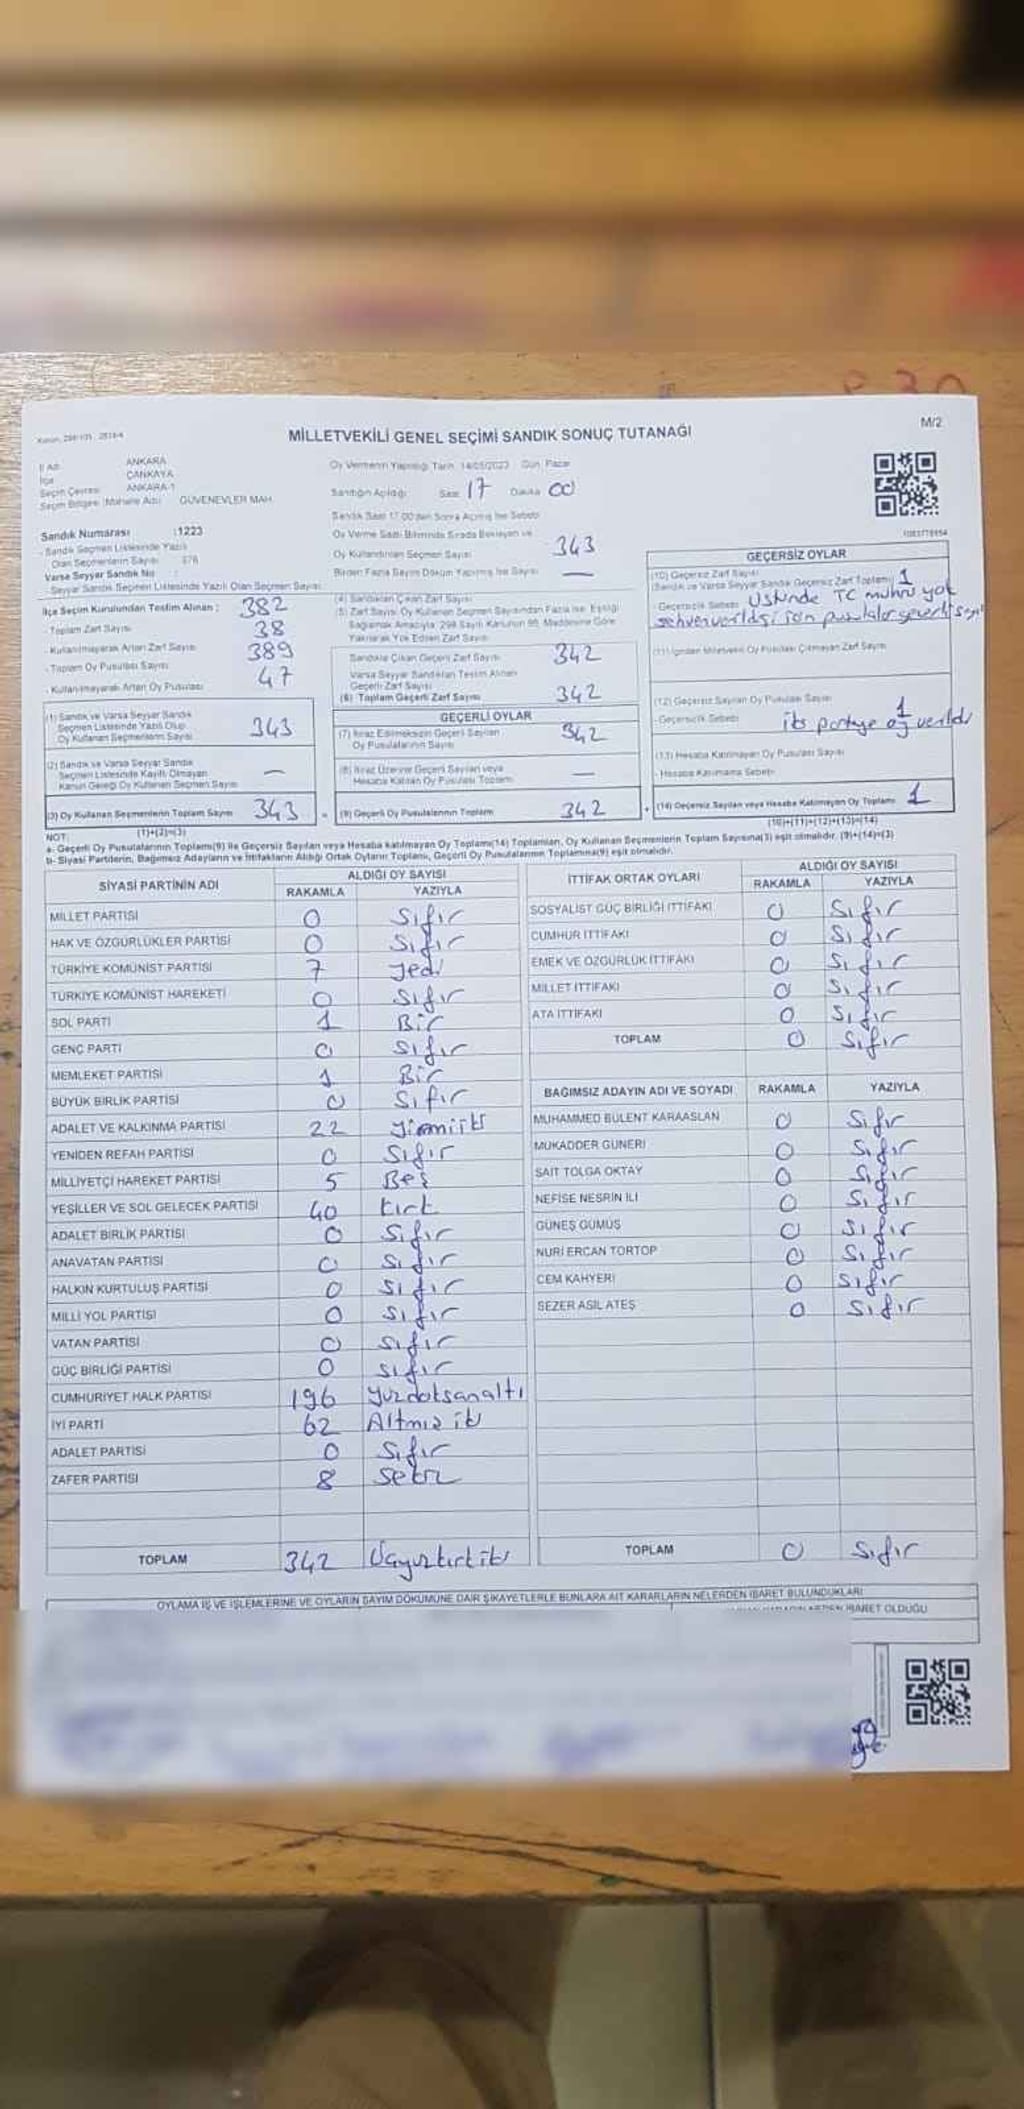 M/2
MİLLETVEKİLİ GENEL SEÇİMİ SANDIK SONUÇ TUTANAĞI
İl Adı ANKARA
İlçe ÇANKAYA
Seçim Çevresi ANKARA-1
Seçim Bölgesi (Mahalle Adı) GÜVENEVLER MAH.
Oy Vermenin Yapıldığı Tarih 14/05/2023 Gün Pazar
Sandığın Açıldığı Saat 17 Dakika 00
Sandık Saat 17:00'den Sonra Açılmış İse Sebebi
Sandık Numarası :1223
- Sandık Seçmen Listesinde Yazılı
Olan Seçmenlerin Sayısı 376
Varsa Seyyar Sandık No :
- Seyyar Sandık Seçmen Listesinde Yazılı Olan Seçmen Sayısı
Oy Verme Saati Bitiminde Sırada Bekleyen ve
Oy Kullandırılan Seçmen Sayısı 343
Birden Fazla Sayım Döküm Yapılmış İse Sayısı —
İlçe Seçim Kurulundan Teslim Alınan ; 382
- Toplam Zarf Sayısı 38
- Kullanılmayarak Artan Zarf Sayısı 389
- Toplam Oy Pusulası Sayısı 47
- Kullanılmayarak Artan Oy Pusulası
(4) Sandıktan Çıkan Zarf Sayısı
(5) Zarf Sayısı Oy Kullanan Seçmen Sayısından Fazla İse, Eşitliği
Sağlamak Amacıyla 298 Sayılı Kanunun 98. Maddesine Göre
Yakılarak Yok Edilen Zarf Sayısı
Sandıkta Çıkan Geçerli Zarf Sayısı 342
Varsa Seyyar Sandıktan Teslim Alınan
Geçerli Zarf Sayısı
(6) Toplam Geçerli Zarf Sayısı 342
(1) Sandık ve Varsa Seyyar Sandık
Seçmen Listesinde Yazılı Olup
Oy Kullanan Seçmenlerin Sayısı 343
(2) Sandık ve Varsa Seyyar Sandık
Seçmen Listesinde Kayıtlı Olmayan
Kanun Gereği Oy Kullanan Seçmen Sayısı —
(3) Oy Kullanan Seçmenlerin Toplam Sayısı 343
(1)+(2)=(3)
GEÇERLİ OYLAR
(7) İtiraz Edilmeksizin Geçerli Sayılan
Oy Pusulalarının Sayısı 342
(8) İtiraz Üzerine Geçerli Sayılan veya
Hesaba Katılan Oy Pusulası Toplamı —
(9) Geçerli Oy Pusulalarının Toplamı 342
GEÇERSİZ OYLAR
(10) Geçersiz Zarf Sayısı
(Sandık ve Varsa Seyyar Sandık Geçersiz Zarf Toplamı) 1
- Geçersizlik Sebebi Üstünde TC mührü yok
sehven verildiği son pusulalar geçerli sayı
(11) İçinden Milletvekili Oy Pusulası Çıkmayan Zarf Sayısı
(12) Geçersiz Sayılan Oy Pusulası Sayısı 1
- Geçersizlik Sebebi iki partiye oy verildi
(13) Hesaba Katılmayan Oy Pusulası Sayısı
- Hesaba Katılmama Sebebi
(14) Geçersiz Sayılan veya Hesaba Katılmayan Oy Toplamı 1
(10)+(11)+(12)+(13)=(14)
NOT:
a- Geçerli Oy Pusulalarının Toplamı(9) ile Geçersiz Sayılan veya Hesaba Katılmayan Oy Toplamı(14) Toplamları, Oy Kullanan Seçmenlerin Toplam Sayısına(3) eşit olmalıdır. (9)+(14)=(3)
b- Siyasi Partilerin, Bağımsız Adayların ve İttifakların Aldığı Ortak Oyların Toplamı, Geçerli Oy Pusulalarının Toplamına(9) eşit olmalıdır.
SİYASİ PARTİNİN ADI ALDIĞI OY SAYISI
RAKAMLA YAZIYLA
MİLLET PARTİSİ 0 Sıfır
HAK VE ÖZGÜRLÜKLER PARTİSİ 0 Sıfır
TÜRKİYE KOMÜNİST PARTİSİ 7 Yedi
TÜRKİYE KOMÜNİST HAREKETİ 0 Sıfır
SOL PARTİ 1 Bir
GENÇ PARTİ 0 Sıfır
MEMLEKET PARTİSİ 1 Bir
BÜYÜK BİRLİK PARTİSİ 0 Sıfır
ADALET VE KALKINMA PARTİSİ 22 Yirmiiki
YENİDEN REFAH PARTİSİ 0 Sıfır
MİLLİYETÇİ HAREKET PARTİSİ 5 Beş
YEŞİLLER VE SOL GELECEK PARTİSİ 40 kırk
ADALET BİRLİK PARTİSİ 0 Sıfır
ANAVATAN PARTİSİ 0 Sıfır
HALKIN KURTULUŞ PARTİSİ 0 Sıfır
MİLLİ YOL PARTİSİ 0 Sıfır
VATAN PARTİSİ 0 Sıfır
GÜÇ BİRLİĞİ PARTİSİ 0 Sıfır
CUMHURİYET HALK PARTİSİ 196 Yüzdoksanaltı
İYİ PARTİ 62 Altmışiki
ADALET PARTİSİ 0 Sıfır
ZAFER PARTİSİ 8 Sekiz
TOPLAM 342 Üçyüzkırkiki
İTTİFAK ORTAK OYLARI ALDIĞI OY SAYISI
RAKAMLA YAZIYLA
SOSYALİST GÜÇ BİRLİĞİ İTTİFAKI 0 Sıfır
CUMHUR İTTİFAKI 0 Sıfır
EMEK VE ÖZGÜRLÜK İTTİFAKI 0 Sıfır
MİLLET İTTİFAKI 0 Sıfır
ATA İTTİFAKI 0 Sıfır
TOPLAM 0 Sıfır
BAĞIMSIZ ADAYIN ADI VE SOYADI RAKAMLA YAZIYLA
MUHAMMED BÜLENT KARAASLAN 0 Sıfır
MUKADDER GÜNERİ 0 Sıfır
SAİT TOLGA OKTAY 0 Sıfır
NEFİSE NESRİN İLİ 0 Sıfır
GÜNEŞ GÜMÜŞ 0 Sıfır
NURİ ERCAN TORTOP 0 Sıfır
CEM KAHYERİ 0 Sıfır
SEZER ASİL ATEŞ 0 Sıfır
TOPLAM 0 Sıfır
OYLAMA İŞ VE İŞLEMLERİNE VE OYLARIN SAYIM DÖKÜMÜNE DAİR ŞİKAYETLERLE BUNLARA AİT KARARLARIN NELERDEN İBARET BULUNDUKLARI
İBARET OLDUĞU